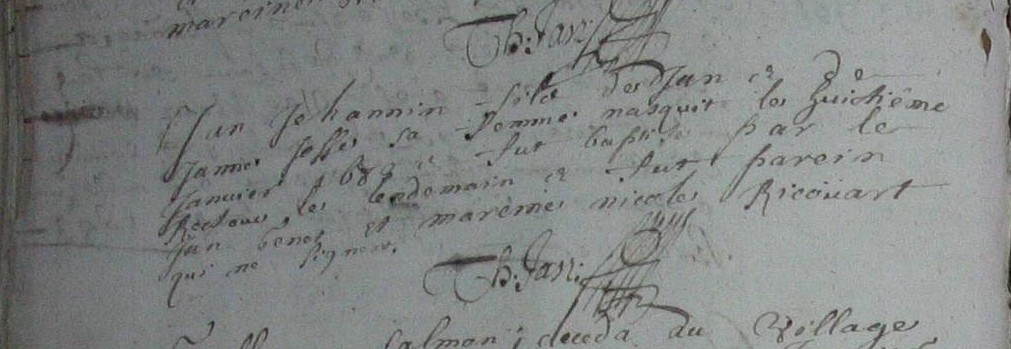 Th: Jan
Jan Jehannin fils de Jan et de
Janne Josse sa femme nasquit le huictiême
Janvier 168 et fut baptisé par le
Recteur le lendemain et fut parein
Jan benet et mareine nicole Ricoüart
qui ne signent.
Th: Jan
Salmon; deceda au village